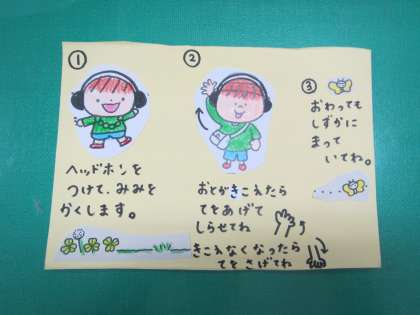 ①
ヘッドホンを
つけて、みみを
かくします。
②
おとがきこえたら
てをあげて
しらせてね
きこえなくなったら
てをさげてね
③
おわっても
しずかに
まって
いてね。